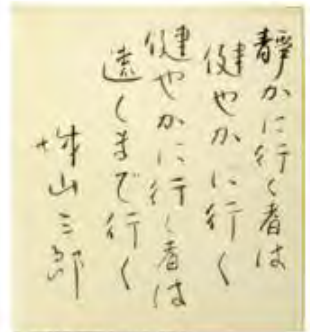 静かに行く者は
健やかに行く
健やかに行く者は
遠くまで行く
城山三郎